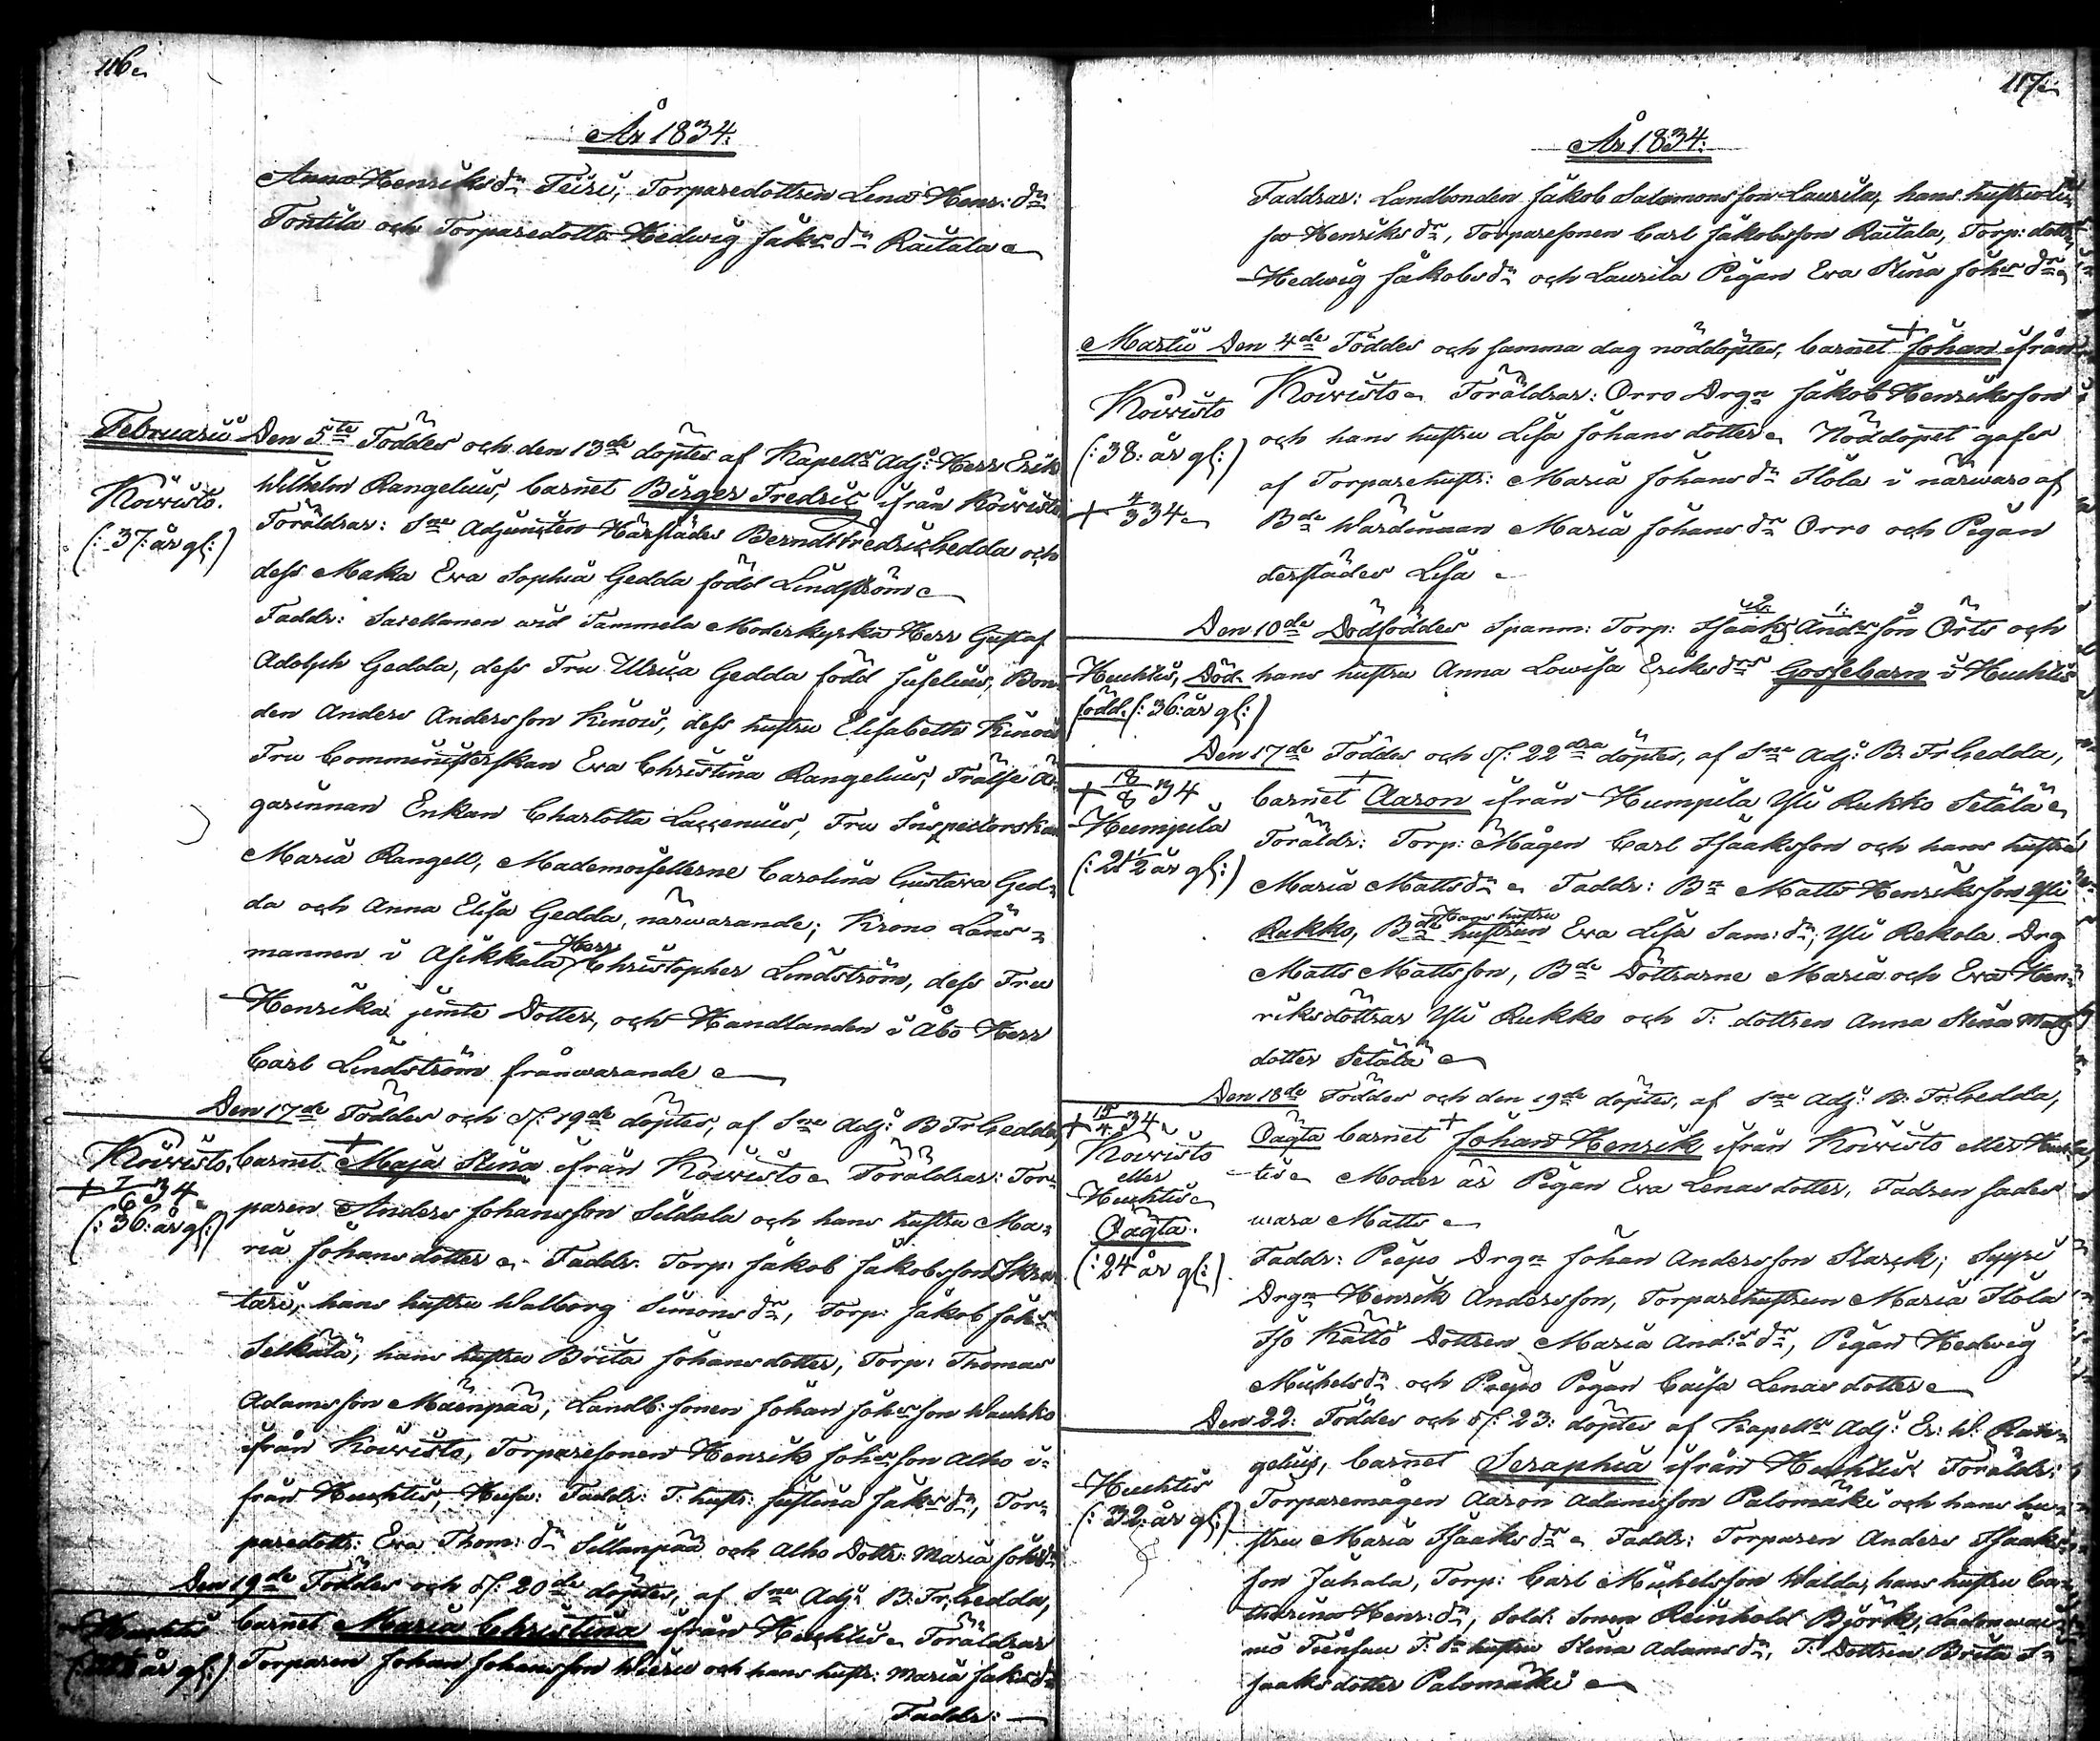 116.
År 1834.
Anna Henriksdr Teiri, Torparedottren Lena Henr: dr
Tontila och Torparedottr Hedwig Jaks dr Raitala
Februarii Den 5te Föddes och den 13de döptes af Kapells Adj: Herr Erik
Koivisto.
(: 37: år gl:)
Wilhelm Rangelius, barnet Birger Fredric ifrån Koivisto
Föräldrar: Sne Adjuncten härstädes Berndt Fredric Gedda och
dess Maka Eva Sophia Gedda född Lindström
Faddr: Sacellanen wid Tammela Moderkyrka Herr Gustaf
Adolph Gedda, dess Fru Ulrica Gedda född Juselius, Bon-
den Anders Andersson Kinois, dess hustru Elisabeth Kinois
Fru Communisterskan Eva Christina Rangelius, Frälse Ä-
garinnan Enkan Charlotta Laccenius, Fru Inspectorskan
Maria Rangell, Mademoisellerne Carolina Gustava Ged-
da och Anna Elisa Gedda, närwarande; Krono Läns-
mannen i Asikkala Herr Christopher Lindström, dess Fru
Henrika jemte Dotter, och Handlanden i Åbo Herr
Carl Lindström frånwarande
Den 17de Föddes och d: 19de döptes, af Sne Adj: B Fr Gedda,
Koivisto.
+ 7/6 34
(: 36: år gl:)
barnet + Maja Stina ifrån Koivisto Föräldrar: Tor-
paren Anders Johansson Sildala och hans hustru Ma-
ria Johansdotter Faddr. Torp: Jakob Jakobsson
hans hustru Walborg Simonsdr, Torp: Jakob Joh:s
Selkälä, hans hustru Brita Johansdotter, Torp: Thomas
Adamsson Mäenpää, Landb: sonen Johan Johsson Wauhko
ifrån Koivisto, Torparesonen Henrik Johsson Alho i-
från Huhtis, Faddr: T: hustr: Justina Jaksdr, Tor-
paredottr: Eva Thom: dr Sillanpää och Alho Dottr: Maria Johsdr
Den 19de Föddes och d: 20de döptes, af Sne Adj: B: Fr: Gedda,
Huhtis
år gl:)
barnet Maria Christina ifrån Huhtis Föräldrar
Torparen Johan Johansson och hans hustr: Maria Jaksdr
Faddr:
117.
År 1834.
Faddrar: Landbonden Jakob Salomonsson Laurila, hans hustru Li-
sa Henriksdr, Torparesonen Carl Jakobsson Raitala, Torp: dottr
Hedwig Jakobsdr och Laurila Pigan Eva Stina Johs dr
Martii Den 4de Föddes och samma dag nöddöptes, barnet + Johan ifrån
Koivisto
(: 38: år gl:)
+ 4/3 34
Koivisto Föräldrar: Orro Drgn Jakob Henriksson
och hans hustru Lisa Johansdotter Nöddopet gafs
af Torparehustr: Maria Johansdr Ilola i närwaro af
Bde Wärdinnan Maria Johansdr Orro och Pigan
derstädes Lisa
Den 10de Dödföddes Spanm: Torp: Isaaks Andsson Örts och
Huhtis, Död-
född. (: 36: år gl:)
hans hustru Anna Lowisa Eriksdrs Gossebarn i Huhtis
Den 17de Föddes och d: 22dra döptes, af Sne Adj: B: Fr Gedda,
+ 18/8 34
Humpila
(: 21 1/2 år gl:)
barnet + Aaron ifrån Humpila Yli Rukko Setälä
Föräldr: Torp: Mågen Carl Isaaksson och hans hustru
Maria Mattsdr Faddr: Bn Matts Henriksson Yli
Rukko, Bde hustrun Hans hustru Eva Lisa Sam: dr, Yli Rekola Drg
Matts Mattsson, Bde Döttrarne Maria och Eva Hen-
riksdöttrar Yli Rukko och T: dottren Anna Stina Matts
dotter Setälä
Den 18de Föddes och den 19de döptes, af Sne Adj: B: Fr: Gedda,
+ 15/4 34
Koivisto
eller
Huhtis
Oägta.
(: 24 år gl:)
Oägta barnet + Johan Henrik ifrån Koivisto eller Huh-
tis Moder är Pigan Eva Lenasdotter, Fadren sades
wara Matts
Faddr: Piepo Drgn Johan Andersson Starck; Sippi
Drgn Henrik Andersson, Torparehustrun Maria Ilola
Iso Kättö Dottren Maria And:s dr, Pigan Hedwig
Michelsdr och Piepo Pigan Caisa Lenasdotter
Den 22: Föddes och d: 23: döptes af Kapells Adj: Er: W: Ran-
Huhtis
(: 32: år gl:)
gelius, barnet Seraphia ifrån Huhtis Föräldr:
Torparemågen Aaron Adamsson Palomäki och hans hu-
stru Maria Isaaksdr Faddr: Torparen Anders Isaaks-
son Juhala, Torp: Carl Michelsson Walda, hans hustru Ca-
tharina Henr: dr, Sold: sonen Reinhold Björk,
T: hustru Stina Adamsdr, T: Dottren Brita I-
saaksdotter Palomäki